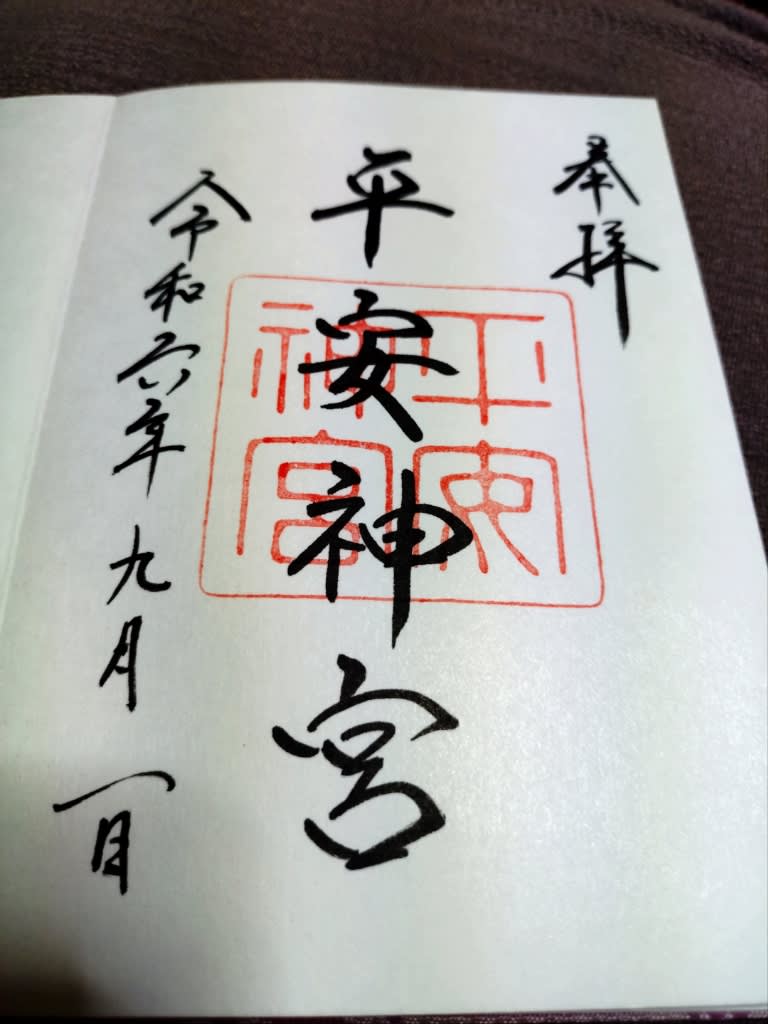 奉拝
平安神宮
平安神宮
令和六年九月一日